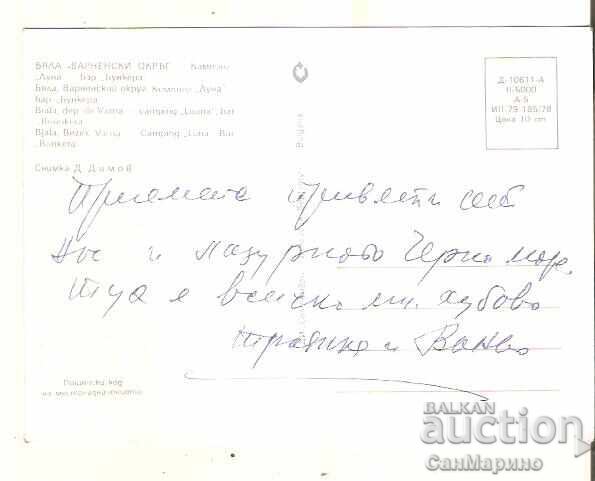 БЯЛА — ВАРНЕНСКИ ОКРЪГ — Къмпинг
„Луна" — Бар „Бункера"
Бяла, Варненский округ. Кемпинг „Луна"
Бар „Бункера"
Biala, dep. de Varna — camping "Louna", bar
Bjala, Bezirk Varna — Camping „Luna" Bar
„Bunkera"
Снимка Д. Димов
Bulgaria
Д-10611-А
II-5000
А-5
ИП-79 185/78
Цена 10 ст
Приемете привети от
и лазурното Черно море.
Тука е всичко мн. хубаво
и
Пощенски код
на местоназначението
BALKAN
auction
СанМарино